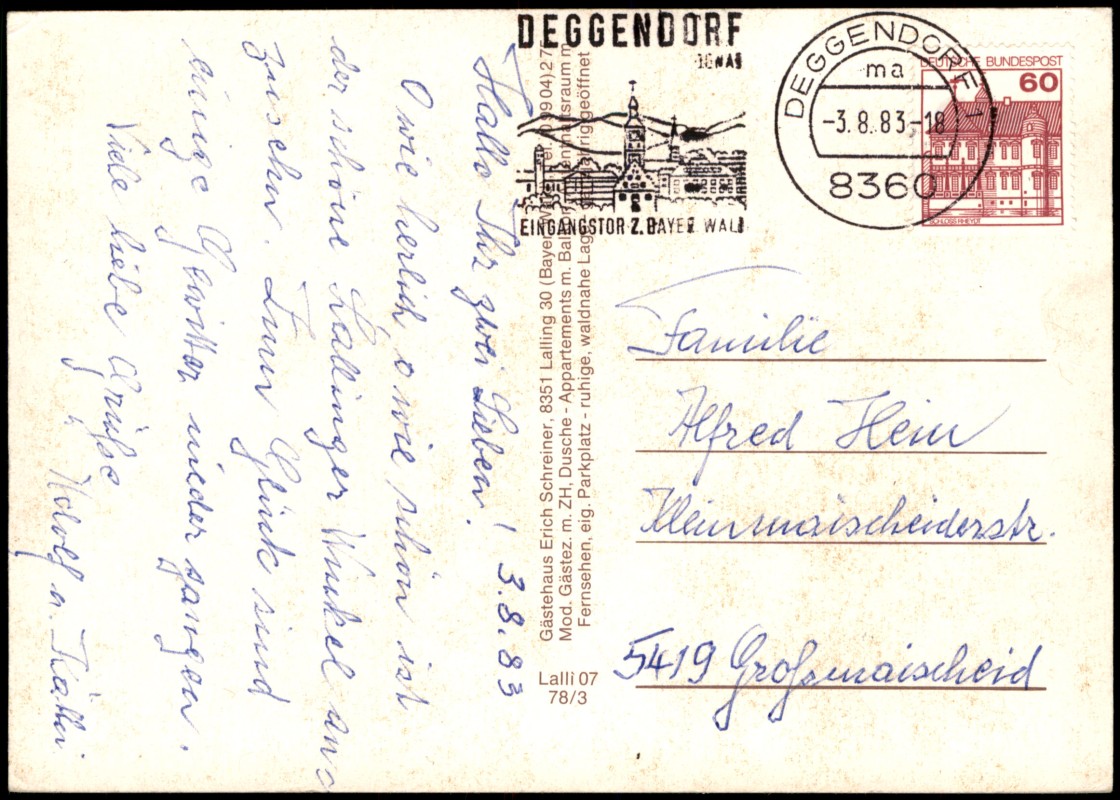 DEGGENDORF
DONAU
EINGANGSTOR Z. BAYER. WALD
DEGGENDORF 1
ma
-3.8.83-18
8360
DEUTSCHE BUNDESPOST
60
SCHLOSS RHEYDT
Hallo Ihr zwei Lieben! 3.8.83
O wie herlich, o wie schön ist
der schöne Lallinger Winkel uns
zwischn. Zum Glück sind
einige Gewitter nieder gangen.
Viele liebe Grüße
Gästehaus Erich Schreiner, 8351 Lalling 30 (Bayer.
Mod. Gästez. m. ZH, Dusche - Appartements m.
Fernsehen, eig. Parkplatz - ruhige, waldnahe geöffnet
Lalli 07
78/3
Familie
Alfred Hein
Kleinmaischeiderstr.
5419 Großmaischeid